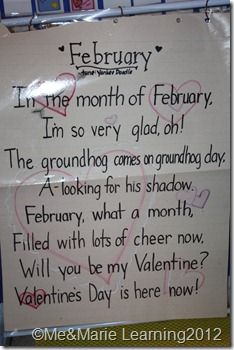 February
tune: Yankee Doodle
In the month of February,
I'm so very glad, oh!
The groundhog comes on groundhog day,
A-looking for his shadow.
February, what a month,
Filled with lots of cheer now,
Will you be my Valentine?
Valentine's Day is here now!
©Me&Marie Learning2012